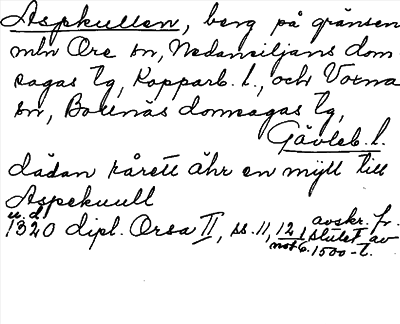 Aspkullen, berg på gränsen
mln Ore sn, Nedansiljans dom-
sagas tg, Kopparb. l., och Voxna
sn, Bollnäs domsagas tg,
Gävleb. l.
dädan rårett åhr en mijll till
Aspekuull
u. d.
1320 dipl. Orsa II, ss. 11, 12 avskr. fr.
not 6. slutet av
1500-t.